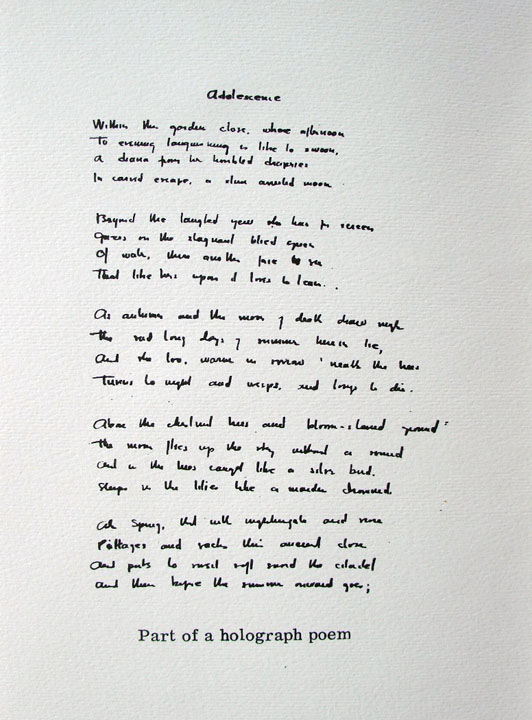 Adolescence
Within the garden close, whose afternoon
To evening languishing is like to swoon,
a diana from her humbled draperies
In carved escape, a slim arrested moon
Beyond the laughed yews who has for screen
Gazes on the stagnant blied green
Of water, there another face to see
That like hers upon it loves to lean.
As autumn and the moon of death draw nigh
The sad long days of summer herein lie,
And she too, warm in sorrow 'neath the trees
Turns to night and weeps, and longs to die.
Above the trees and bloom-starred ground
The moon flies up the sky without a sound
and in the trees caught like a silver bird.
Sleeps in the lilies like a maiden drowned.
Ah Spring, that with nightingale and rose
Pillages and sacks this ancient close
and puts to rout soft round the citadel
and then before the summer onward goes;
Part of a holograph poem